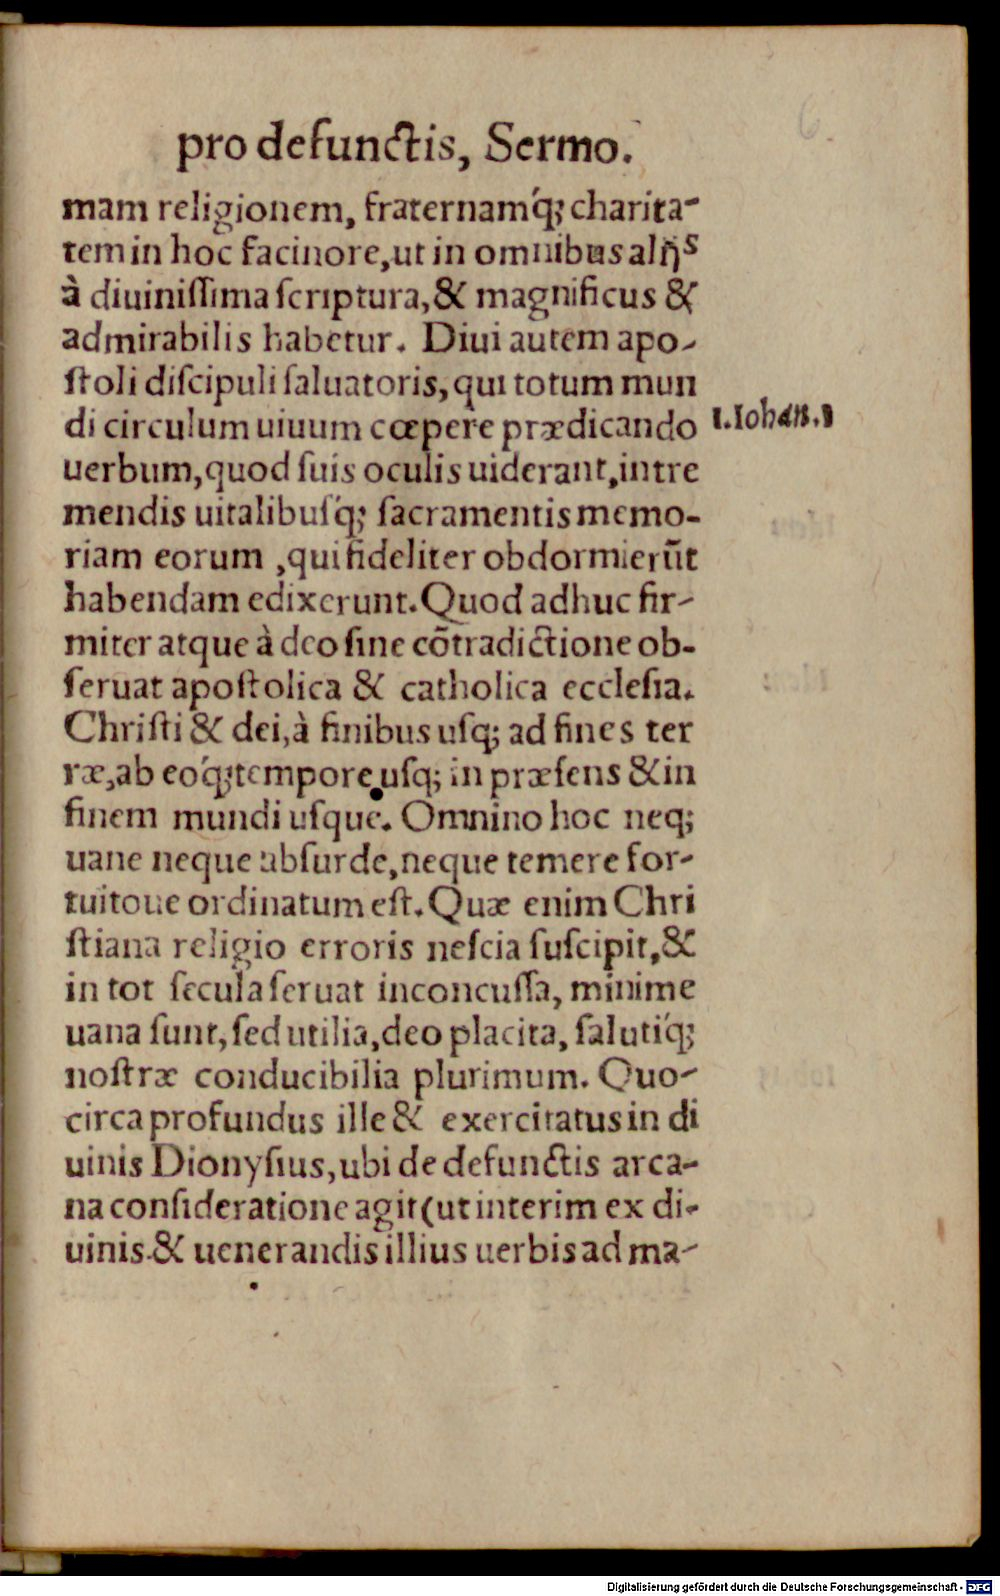 pro defunctis, Sermo.
mam religionem, fraternamq́; charita-
tem in hoc facinore, ut in omnibus alijs
à diuinissima scriptura, & magnificus &
admirabilis habetur. Diui autem apo-
stoli discipuli saluatoris, qui totum mun
di circulum uiuum cœpere prædicando
1.Iohan.1
uerbum, quod suis oculis uiderant, intre
mendis uitalibusq́; sacramentis memo-
riam eorum, qui fideliter obdormierũt
habendam edixerunt. Quod adhuc fir-
miter atque à deo sine cõtradictione ob-
seruat apostolica & catholica ecclesia.
Christi & dei, à finibus usq; ad fines ter
ræ, ab eoq́; tempore usq; in præsens & in
finem mundi usque. Omnino hoc neq;
uane neque absurde, neque temere for-
tuitoue ordinatum est. Quæ enim Chri
stiana religio erroris nescia suscipit, &
in tot secula seruat inconcussa, minime
uana sunt, sed utilia, deo placita, salutiq́;
nostræ conducibilia plurimum. Quo-
circa profundus ille & exercitatus in di
uinis Dionysius, ubi de defunctis arca-
na consideratione agit (ut interim ex di-
uinis & uenerandis illius uerbis ad ma-
Digitalisierung gefördert durch die Deutsche Forschungsgemeinschaft - DFG